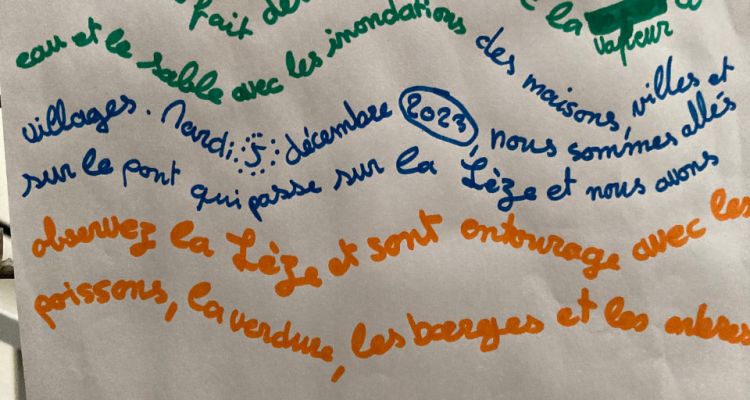 fait de
la vapeur
eau et le sable avec les inondations des maisons, villes et
villages. Mardi 5 décembre 2023, nous sommes allés
sur le pont qui passe sur la Lèze et nous avons
observez la Lèze et sont entourage avec les
poissons, la verdure, les baerges et les arbres